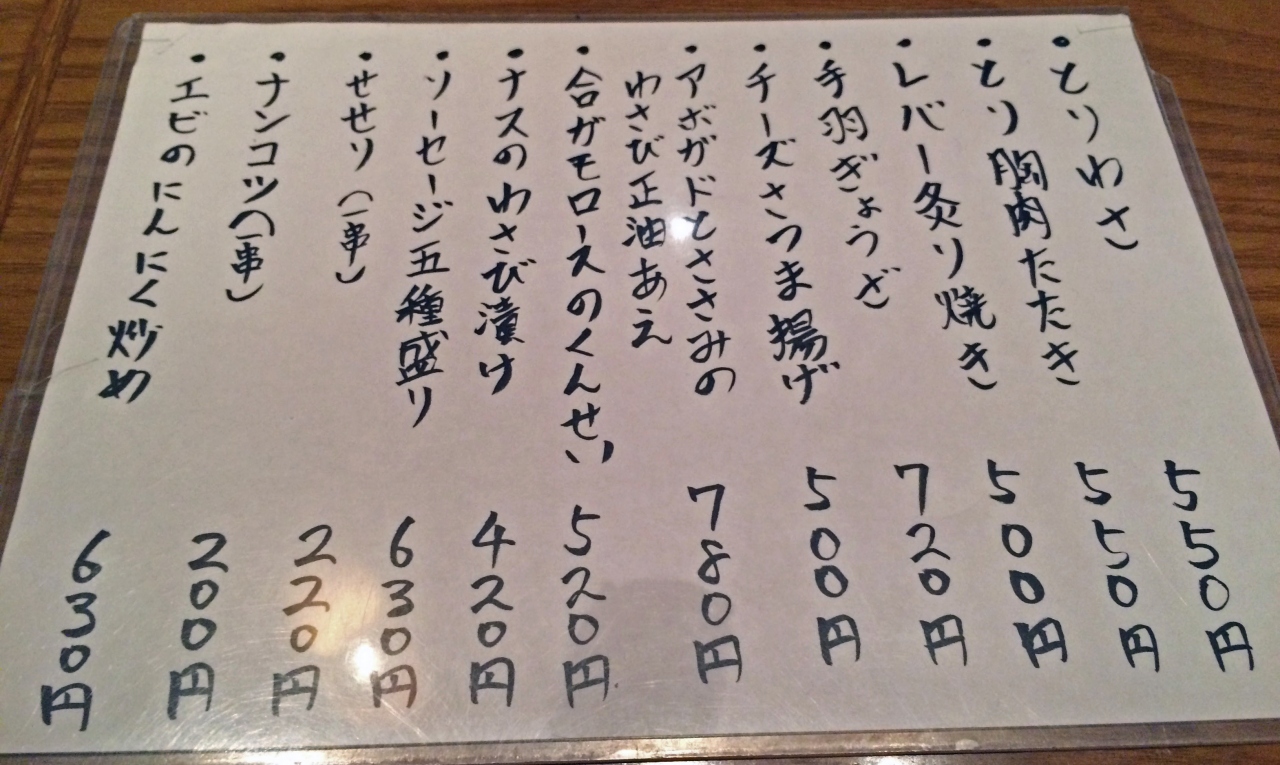 ・とりわさ 550円
・とり胸肉たたき 550円
・レバー炙り焼き 500円
・手羽ぎょうざ 720円
・チーズさつま揚げ 500円
・アボガドとささみの
わさび正油あえ 780円
・合ガモロースのくんせい 520円
・ナスのわさび漬け 420円
・ソーセージ五種盛り 630円
・せせり(一串) 220円
・ナンコツ(一串) 200円
・エビのにんにく炒め 630円